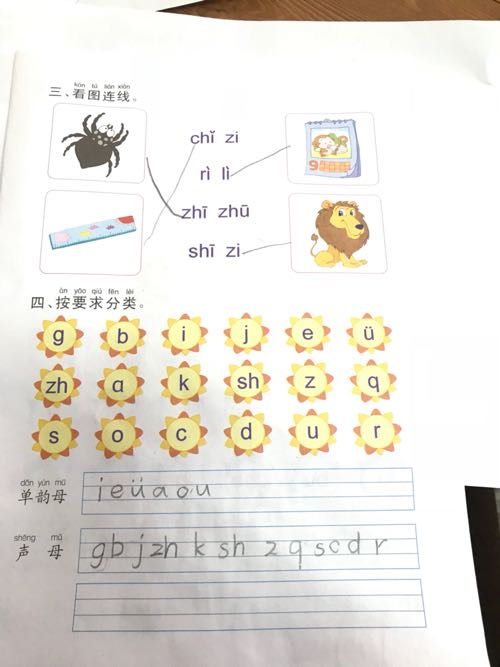 kàn tú lián xiàn
三、看图连线。
chǐ zi
rì lì
zhī zhū
shī zi
9
àn yāo qiú fēn lèi
四、按要求分类。
g b i j e ü
zh ɑ k sh z q
s o c d u r
dān yùn mǔ
单韵母 i e ü a o u
shēng mǔ
声母 g b j zh k sh z q s c d r